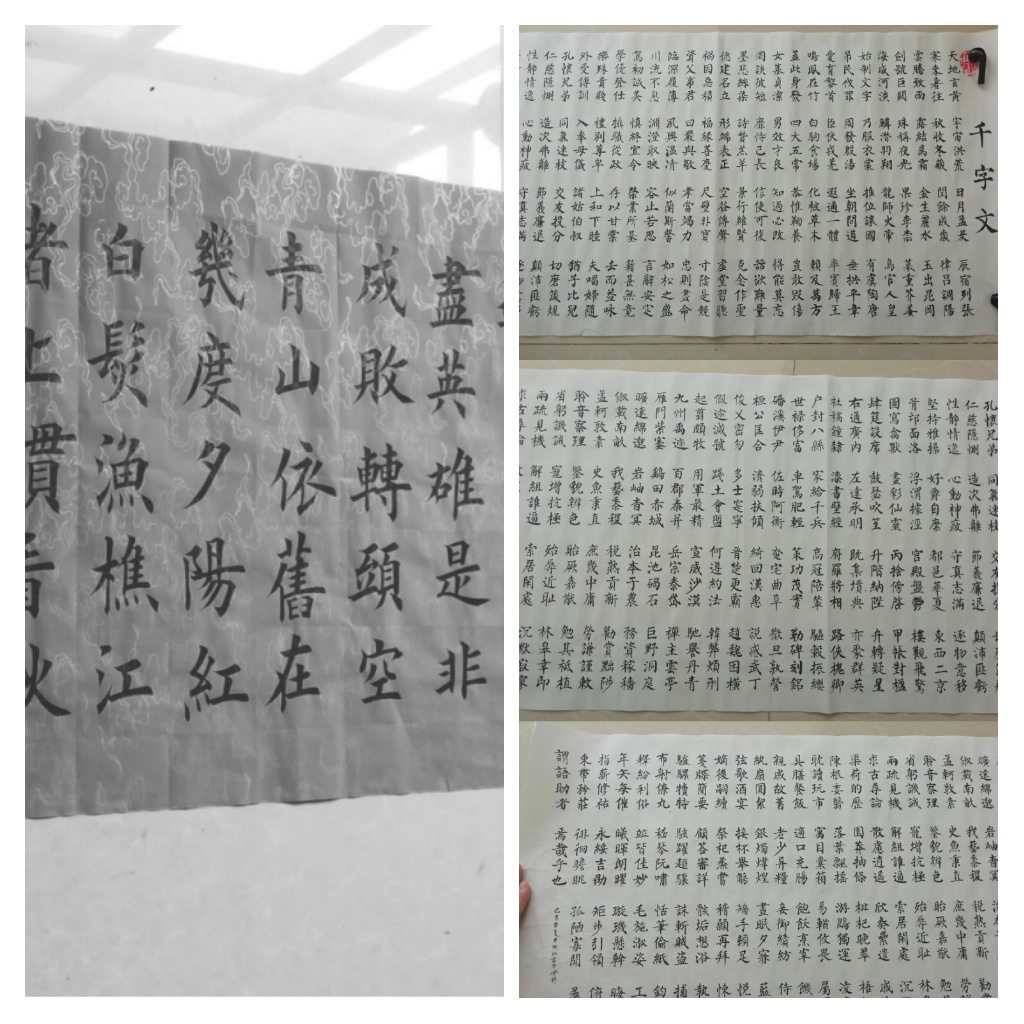 盡英雄是非
成敗轉頭空
青山依舊在
幾度夕陽紅
白髮漁樵江
上慣看秋
千字文
天地玄黃 宇宙洪荒 日月盈昃 辰宿列張
寒來暑往 秋收冬藏 閏餘成歲 律呂調陽
雲騰致雨 露結為霜 金生麗水 玉出崑岡
劍號巨闕 珠稱夜光 果珍李柰 菜重芥姜
海咸河淡 鱗潛羽翔 龍師火帝 鳥官人皇
始制文字 乃服衣裳 推位讓國 有虞陶唐
吊民伐罪 周發殷湯 坐朝問道 垂拱平章
愛育黎首 臣伏戎羌 遐邇一體 率賓歸王
鳴鳳在竹 白駒食場 化被草木 賴及萬方
蓋此身發 四大五常 恭惟鞠養 豈敢毀傷
女慕貞潔 男效才良 知過必改 得能莫忘
罔談彼短 靡恃己長 信使可復 器欲難量
墨悲絲染 詩贊羔羊 景行維賢 克念作聖
德建名立 形端表正 空谷傳聲 虛堂習聽
禍因惡積 福緣善慶 尺璧非寶 寸陰是競
資父事君 曰嚴與敬 孝當竭力 忠則盡命
臨深履薄 夙興溫清 似蘭斯馨 如松之盛
川流不息 淵澄取映 容止若思 言辭安定
篤初誠美 慎終宜令 榮業所基 籍甚無竟
學優登仕 攝職從政 存以甘棠 去而益詠
樂殊貴賤 禮別尊卑 上和下睦 夫唱婦隨
外受傅訓 入奉母儀 諸姑伯叔 猶子比兒
孔懷兄弟 同氣連枝 交友投分 切磨箴規
仁慈隱惻 造次弗離 節義廉退 顛沛匪虧
性靜情逸 心動神疲 守真志滿
孔懷兄弟 同氣連枝 交友投分
仁慈隱惻 造次弗離 節義廉退 顛沛匪虧
性靜情逸 心動神疲 守真志滿 逐物意移
堅持雅操 好爵自縻 都邑華夏 東西二京
背邙面洛 浮渭據涇 宮殿盤鬱 樓觀飛驚
圖寫禽獸 畫彩仙靈 丙捨傍啓 甲帳對楹
肆筵設席 鼓瑟吹笙 升階納陛 弁轉疑星
右通廣內 左達承明 既集墳典 亦聚群英
杜稿鐘隸 漆書壁經 府羅將相 路俠槐卿
戶封八縣 家給千兵 高冠陪輦 驅轂振纓
世祿侈富 車駕肥輕 策功茂實 勒碑刻銘
磻溪伊尹 佐時阿衡 奄宅曲阜 微旦孰營
桓公匡合 濟弱扶傾 綺回漢惠 說感武丁
俊乂密勿 多士寔寧 晉楚更霸 趙魏困橫
假途滅虢 踐土會盟 何遵約法 韓弊煩刑
起翦頗牧 用軍最精 宣威沙漠 馳譽丹青
九州禹迹 百郡秦并 岳宗泰岱 禪主雲亭
雁門紫塞 雞田赤城 昆池碣石 巨野洞庭
曠遠綿邈 岩岫杳冥 治本于農 務資稼穡
俶載南畝 我藝黍稷 稅熟貢新 勸賞黜陟
孟軻敦素 史魚秉直 庶幾中庸 勞謙謹敕
聆音察理 鑒貌辨色 貽厥嘉猷 勉其祗植
省躬譏誡 寵增抗極 殆辱近恥 林皋幸即
兩疏見機 解組誰逼 索居閑處 沉默寂寥
曠遠綿邈 岩岫杳冥
俶載南畝 我藝黍稷 稅熟貢新
孟軻敦素 史魚秉直 庶幾中庸
聆音察理 鑒貌辨色 貽厥嘉猷
省躬譏誡 寵增抗極 殆辱近恥
兩疏見機 解組誰逼 索居閑處
求古尋論 散慮逍遙 欣奏累遣
渠荷的歷 園莽抽條 枇杷晚翠
陳根委翳 落葉飄搖 游鵾獨運
耽讀玩市 寓目囊箱 易輶攸畏
具膳餐飯 適口充腸 飽飫烹宰
親戚故舊 老少異糧 妾御績紡
紈扇圓絜 銀燭煒煌 晝眠夕寐
弦歌酒宴 接杯舉觴 矯手頓足
嫡後嗣續 祭祀烝嘗 稽顙再拜
箋牒簡要 顧答審詳 骸垢想浴
驢騾犢特 駭躍超驤 誅斬賊盜
布射僚丸 嵇琴阮嘯 恬筆倫紙
釋紛利俗 並皆佳妙 毛施淑姿
年矢每催 曦暉朗曜 璇璣懸斡
指薪修祜 永綏吉劭 矩步引領
束帶矜莊 徘徊瞻眺 孤陋寡聞
謂語助者 焉哉乎也